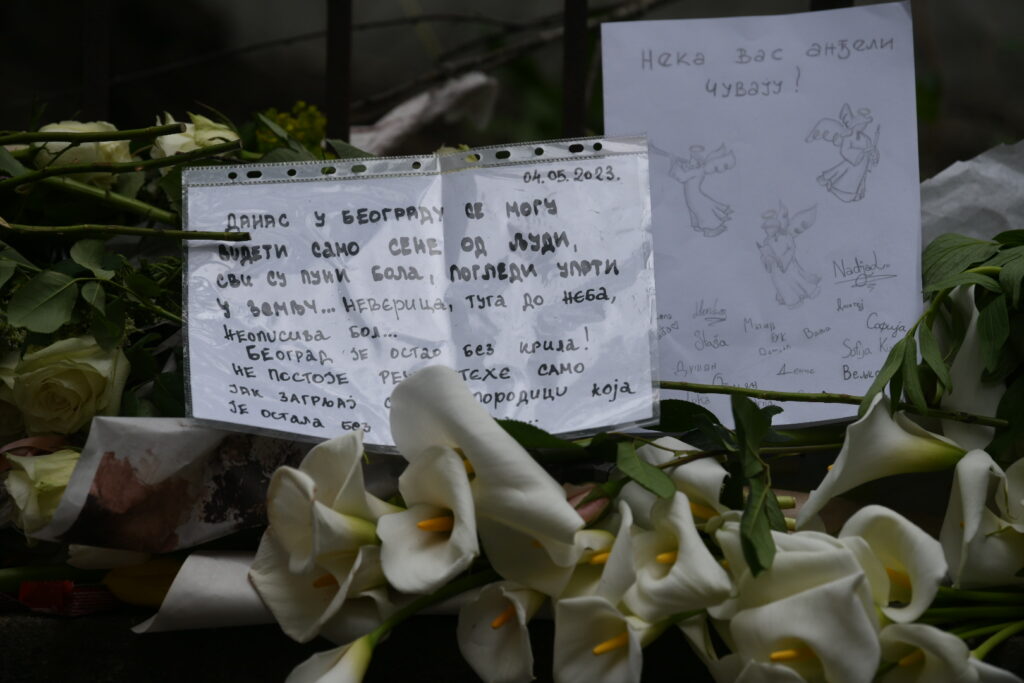 04.05.2023.
ДАНАС У БЕОГРАДУ СЕ МОГУ
ВИДЕТИ САМО СЕНЕ ОД ЉУДИ,
СВИ СУ ПУНИ БОЛА, ПОГЛЕДИ УПРТИ
У ЗЕМЉУ... НЕВЕРИЦА, ТУГА ДО НЕБА,
НЕОПИСИВА БОЛ...
БЕОГРАД ЈЕ ОСТАО БЕЗ КРИЛА!
НЕ ПОСТОЈЕ САМО
ЈАК ЗАГРЉАЈ ПОРОДИЦИ КОЈА
ЈЕ ОСТАЛА БЕЗ
Нека вас анђели
чувају!
Nadja
Софија
Sofija K
Душан